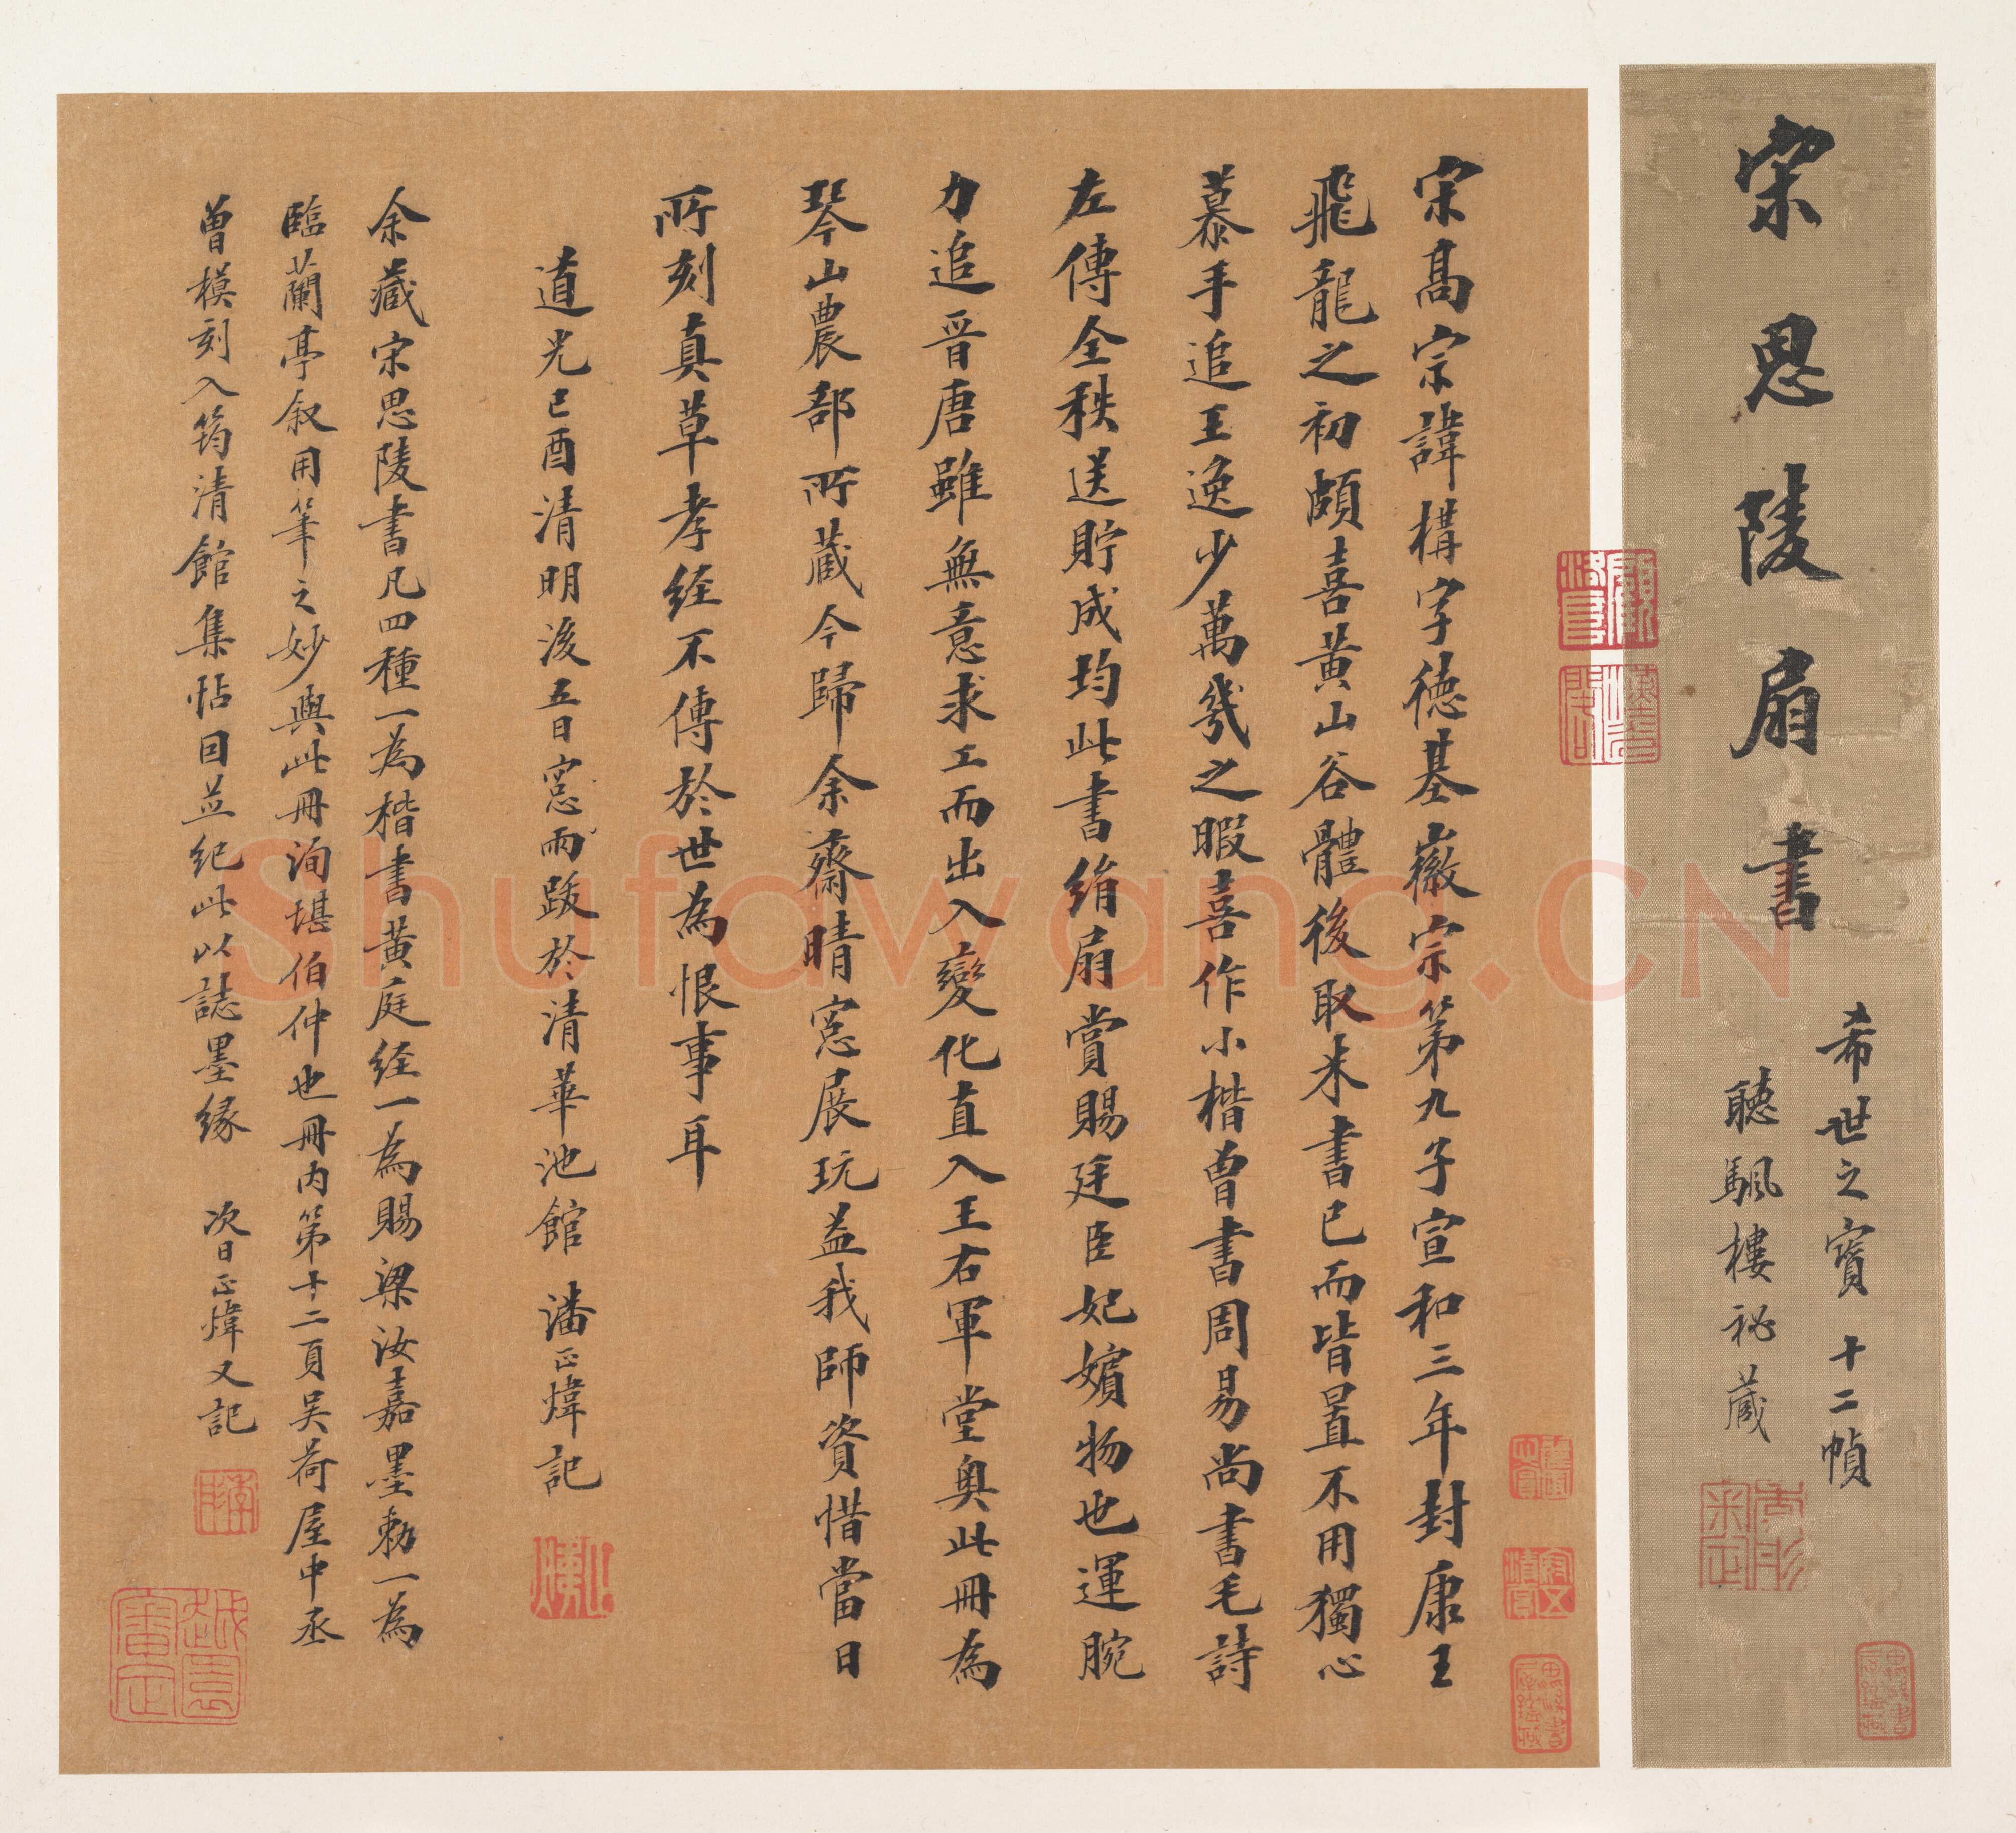 宋思陵扇書
希世之寶十二幀
聽颿樓秘藏
宋高宗諱構字徳基徽宗第九子宣和三年封康王
飛龍之初頗喜黃山谷體後取米書已而皆置不用獨心
慕手追王逸少萬幾之暇喜作小楷曾書周易尚書毛詩
左傳全秩送貯成均此書絹扇賞賜廷臣妃嬪物也運腕
力追晋唐雖無意求工而出入變化直入王右軍堂奥此冊為
琴山農部所藏今歸余齋晴窓展玩益我師資惜當日
所刻真草孝经不傳於世為恨事耳
道光己酉清明後五日窓雨跋於清華池館 潘正煒記
余藏宋思陵書凡四種一為楷書黃庭经一為賜梁汝嘉墨勅一為
臨蘭亭叙用筆之妙與此冊洵堪伯仲也冊内第十二頁吴荷屋中丞
曾模刻入筠清館集帖因并纪此以誌墨缘 次日正煒又記
Shufawang.CN